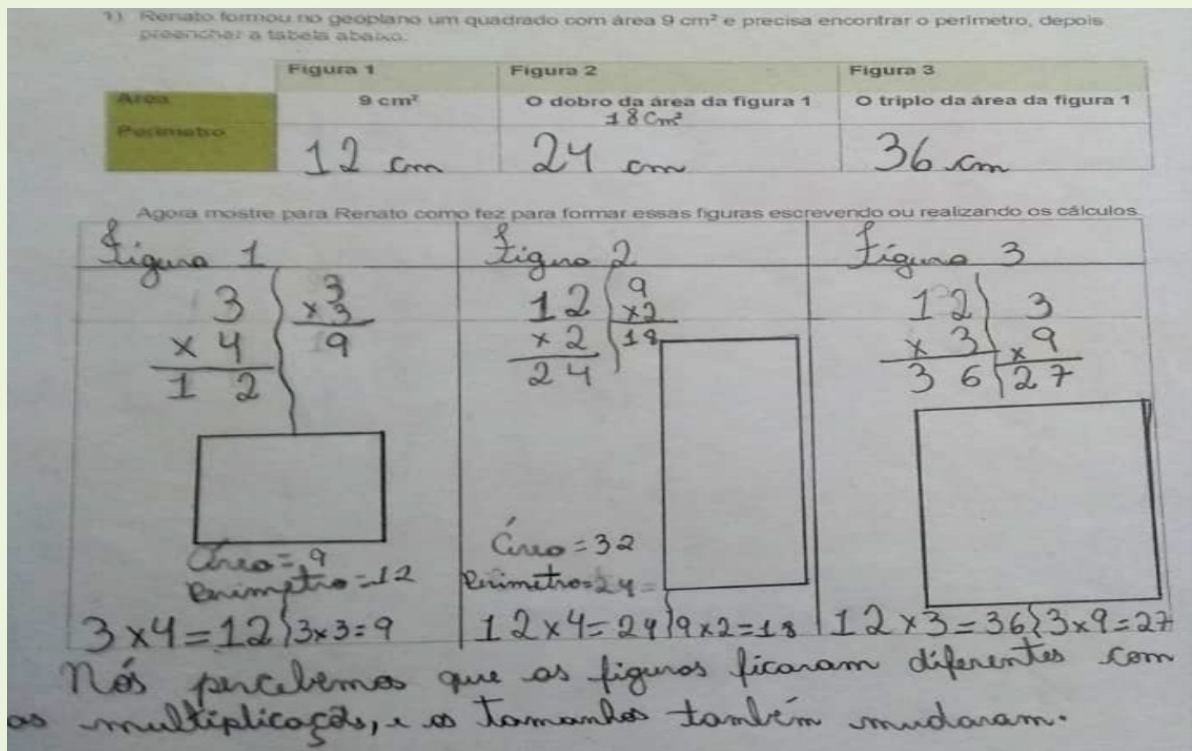 1) Renato formou no geoplano um quadrado com área 9 cm² e precisa encontrar o perímetro, depois
preencher a tabela abaixo.
Figura 1 Figura 2 Figura 3
Área 9 cm² O dobro da área da figura 1 O triplo da área da figura 1
18 Cm²
Perímetro 12 cm 24 cm 36 cm
Agora mostre para Renato como fez para formar essas figuras escrevendo ou realizando os cálculos
figura 1 figura 2 figura 3
3 3 12 9 12 3
x 4 x 3 x 2 x2 x 3 x 9
12 9 24 18 36 27
Área = 9
Perímetro = 12
Área = 32
Perímetro = 24 =
3 x 4 = 12 3x3=9 12 x 4 = 24 9x2=18 12 x 3 = 36 3x9=27
Nós percebemos que as figuras ficaram diferentes com
as multiplicações, e os tamanhos também mudaram.